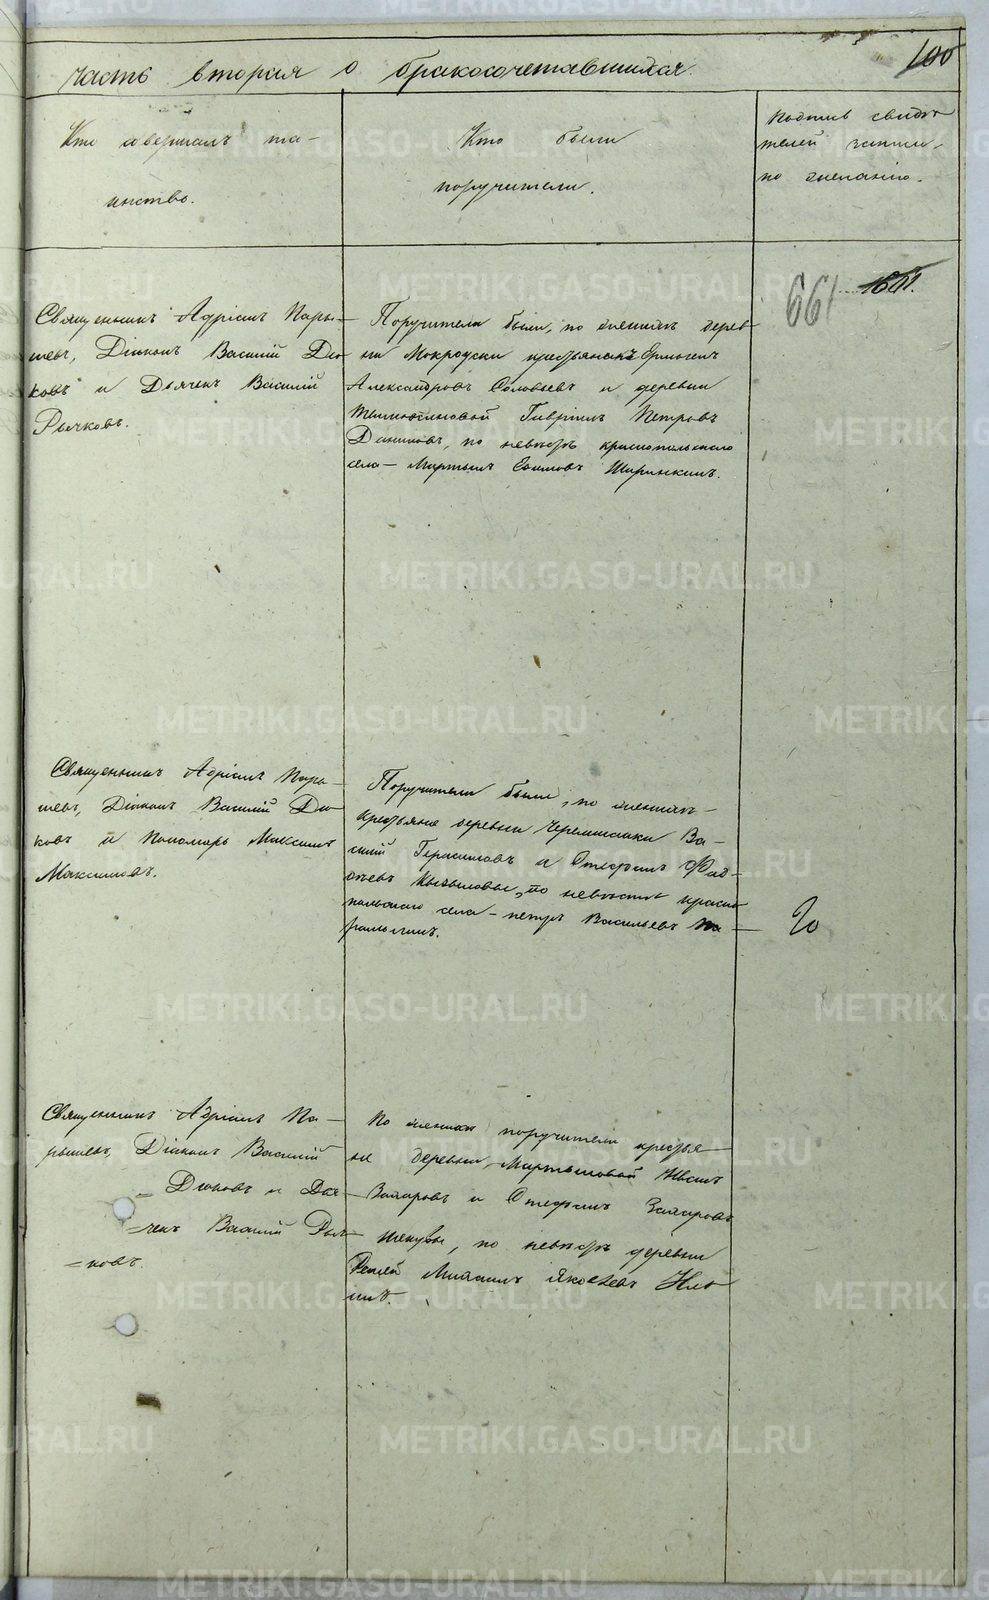 часть вторая о бракосочетавшихся.
100
Кто совершалъ та-
инство.
Кто были
поручители.
подпись свидѣ
телей записи
по желанію.
661
Священникъ Адріанъ Пары-
шевъ, Діаконъ Василій Дю
ковъ и Дьячекъ Василій
Рычковъ.
Поручители были, по женихѣ дерев-
ни Мокроуски крестьянинъ Ермогенъ
Александровъ Соловьевъ и деревни
Гавріилъ Петровъ
по невѣстѣ краснопольского
села - Мартынъ Ефимовъ
Священникъ Адріанъ Пары-
шевъ, Діаконъ Василій Дю-
ковъ и Пономарь Максимъ
Максимовъ.
Поручители были, по женихѣ -
крестьяне деревни Черемшанки Ва-
силій Герасимовъ и Стефанъ Фад-
дѣевъ по невѣстѣ красно
польского села - петръ Васильевъ
20
Священникъ Адріанъ Па-
рышевъ, Діаконъ Василій
= Дюковъ и Дья-
=чекъ Василій Рыч-
=ковъ.
По женихѣ поручители крестья-
не деревни Мартыновой Иванъ
Захаровъ и Стефанъ Захаровъ
по невѣстѣ деревни
Михаилъ Яковлевъ Иль
инъ.
METRIKI.GASO-URAL.RU